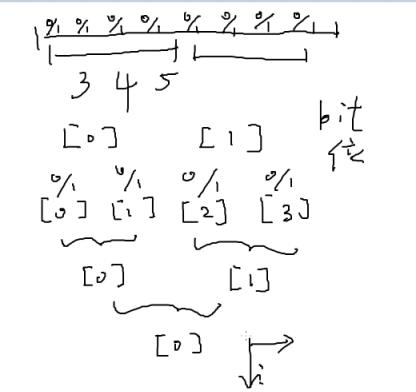 0/1 0/1 0/1 0/1 0/1 0/1 0/1 0/1
3 4 5
[0] [1]
bit
位
0/1 0/1 0/1 0/1
[0] [1] [2] [3]
[0] [1]
[0]
i